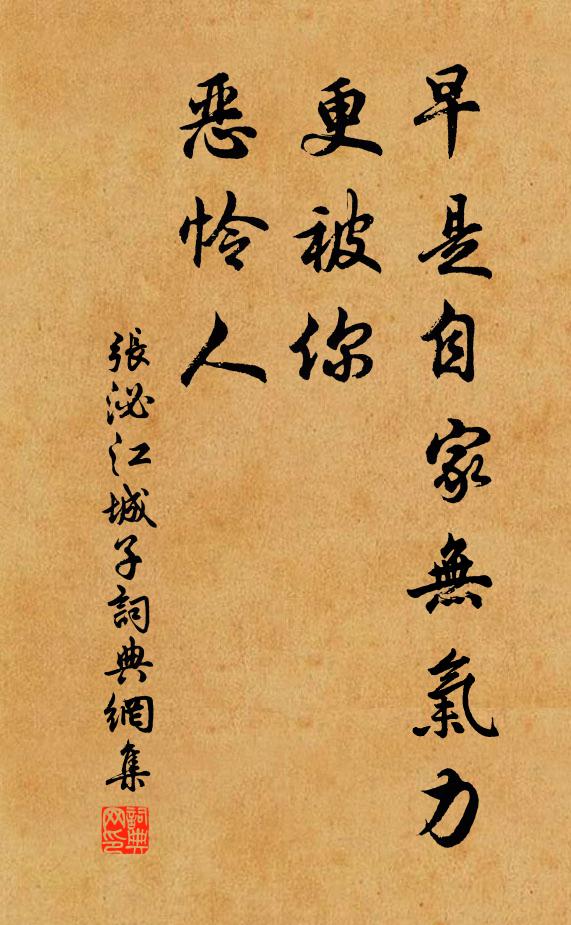 早是自家無氣力
更被你
惡怜人
張泌江城子詞典網集
詞典
网印